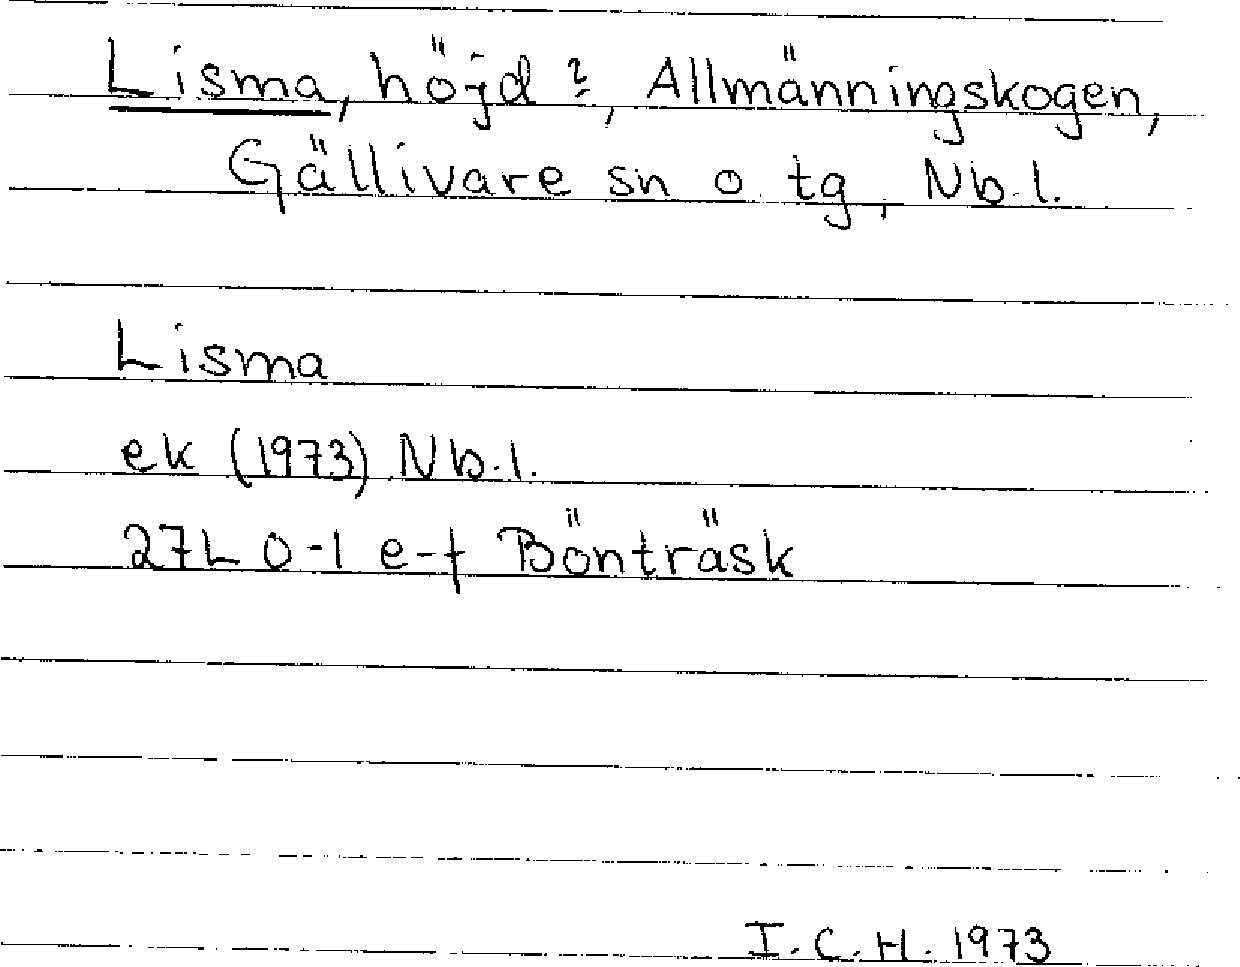 Lisma, höjd?, Allmänningskogen,
Gällivare sn o tg, Nb.l.
Lisma
ek (1973) Nb.l.
27L 0-1 e-f Bönträsk
I.C.H. 1973